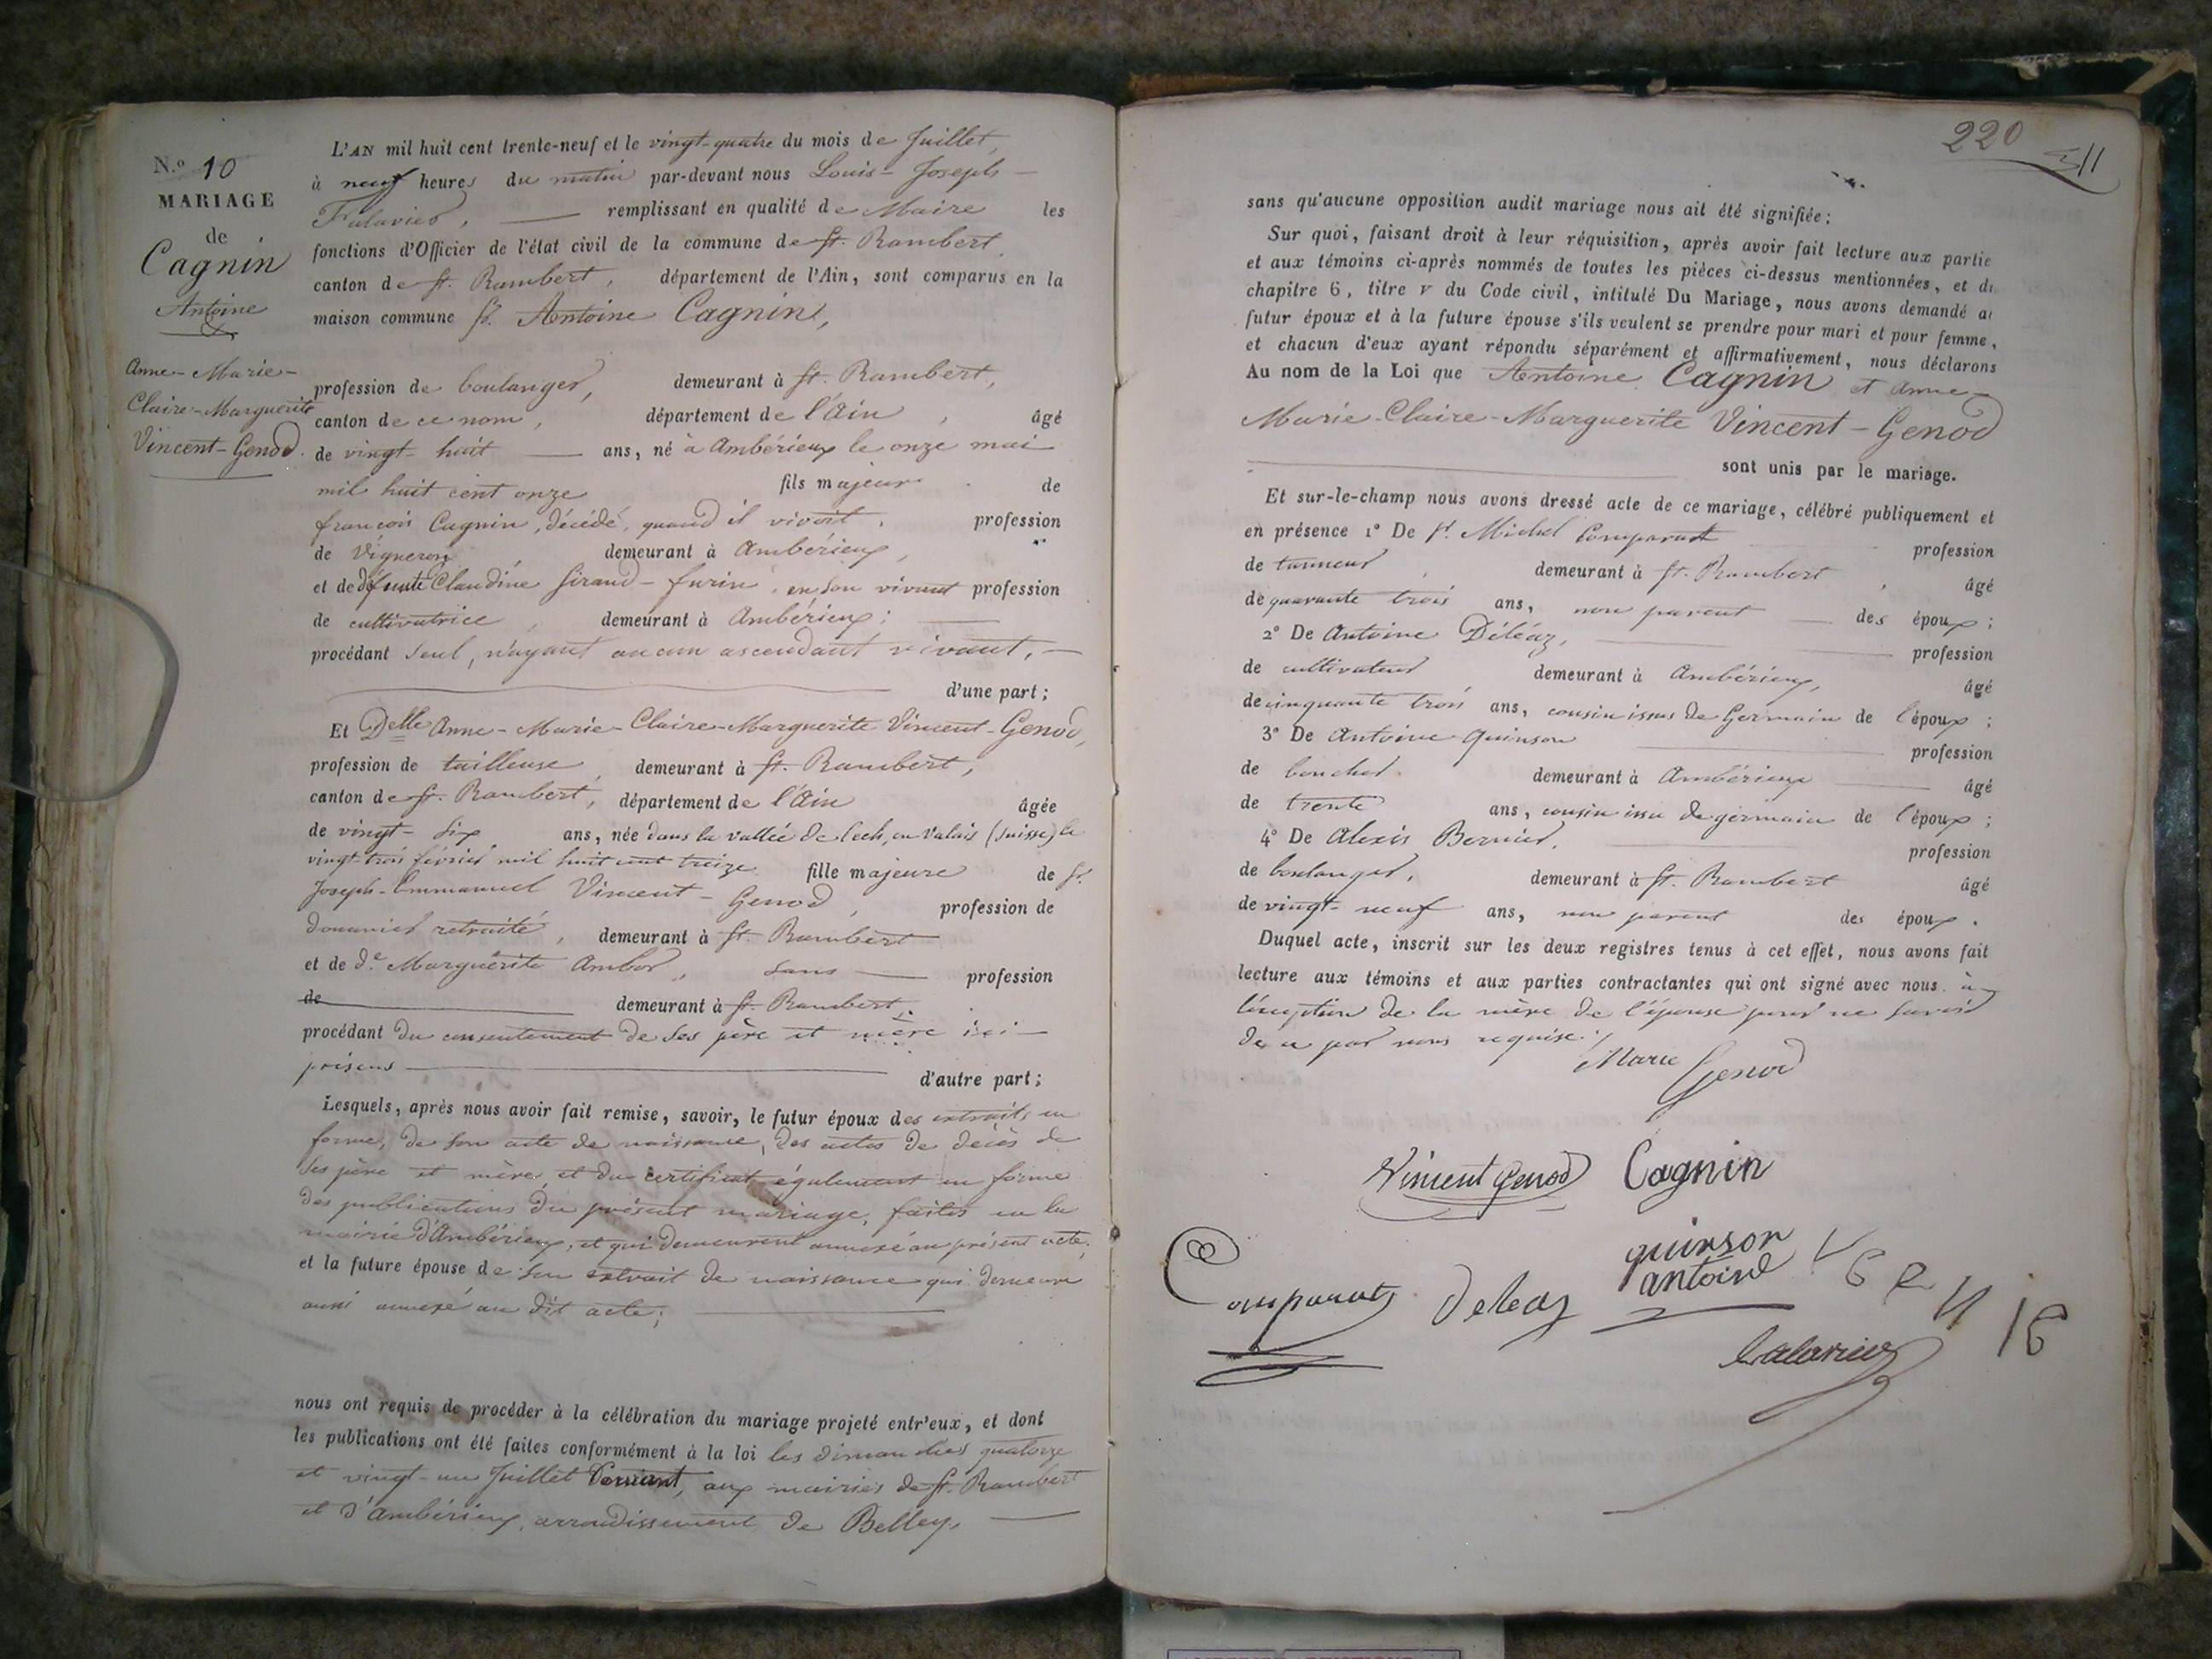 N.o 10
MARIAGE
de
Cagnin
Antoine
Anne-Marie-
Claire-Marguerite
Vincent-Genod.
L'AN mil huit cent trente-neuf et le vingt-quatre du mois de Juillet,
à neuf heures du matin par-devant nous Louis-Joseph
Falavier, remplissant en qualité de Maire les
fonctions d'Officier de l'état civil de la commune de St. Rambert
canton de St. Rambert, département de l'Ain, sont comparus en la
maison commune Sr. Antoine Cagnin,
profession de boulanger, demeurant à St. Rambert,
canton de ce nom, département de l'Ain, âgé
de vingt-huit ans, né à Ambérieux le onze mai
mil huit cent onze fils majeur de
françois Cagnin, décédé, quand il vivoit, profession
de Vigneron, demeurant à Ambérieux,
et de défunte Claudine Siraud-furin, en son vivant profession
de cultivatrice, demeurant à Ambérieux;
procédant seul, n'ayant aucun ascendant vivant,
d'une part;
Et Delle Anne-Marie-Claire-Marguerite Vincent-Genod,
profession de tailleuse, demeurant à St. Rambert,
canton de St. Rambert, département de l'Ain âgée
de vingt-six ans, née dans la vallée de lech, en Valais (Suisse) le
vingt-trois février mil huit cent treize fille majeure de Sr.
Joseph-Emmanuel Vincent-Genod, profession de
douanier retraité, demeurant à St. Rambert
et de de. Marguerite Ambor, sans profession
de demeurant à St. Rambert,
procédant du consentement de ses père et mère ici
présens d'autre part;
Lesquels, après nous avoir fait remise, savoir, le futur époux des extraits en
forme, de son acte de naissance, des actes de décès de
ses père et mère, et du certificat également en forme
des publications du présent mariage, faites en la
mairie d'Ambérieux, et qui demeurent annexé au présent acte;
et la future épouse de son extrait de naissance qui demeure
aussi annexé au dit acte;
nous ont requis de procéder à la célébration du mariage projeté entr'eux, et dont
les publications ont été faites conformément à la loi les dimanches quatorze
et vingt-un Juillet Courant, aux mairies de St. Rambert
et d'Ambérieux, arrondissement de Belley.
220
11
sans qu'aucune opposition audit mariage nous ait été signifiée;
Sur quoi, faisant droit à leur réquisition, après avoir fait lecture aux partie
et aux témoins ci-après nommés de toutes les pièces ci-dessus mentionnées, et du
chapitre 6, titre v du Code civil, intitulé Du Mariage, nous avons demandé au
futur époux et à la future épouse s'ils veulent se prendre pour mari et pour femme,
et chacun d'eux ayant répondu séparément et affirmativement, nous déclarons
Au nom de la Loi que Antoine Cagnin et Anne-
Marie-Claire-Marguerite Vincent-Genod
sont unis par le mariage.
Et sur-le-champ nous avons dressé acte de ce mariage, célébré publiquement et
en présence 1° De Sr. Michel Comparat profession
de tanneur, demeurant à St. Rambert, âgé
de quarante trois ans, non parent des époux;
2° De Antoine Déléaz, profession
de cultivateur demeurant à Ambérieux, âgé
de cinquante trois ans, cousin issus de Germain de l'époux;
3° De Antoine Quinson profession
de boucher demeurant à Ambérieux âgé
de trente ans, cousin issu de germain de l'époux;
4° De Alexis Bernier, profession
de boulanger, demeurant à St. Rambert âgé
de vingt-neuf ans, non parent des époux.
Duquel acte, inscrit sur les deux registres tenus à cet effet, nous avons fait
lecture aux témoins et aux parties contractantes qui ont signé avec nous à
l'exception de la mère de l'épouse pour ne savoir
de ce par nous requise.
Marie
Genod
Vincent Genod Cagnin
quinson
antoine
Comparat Deleaz
Falavier